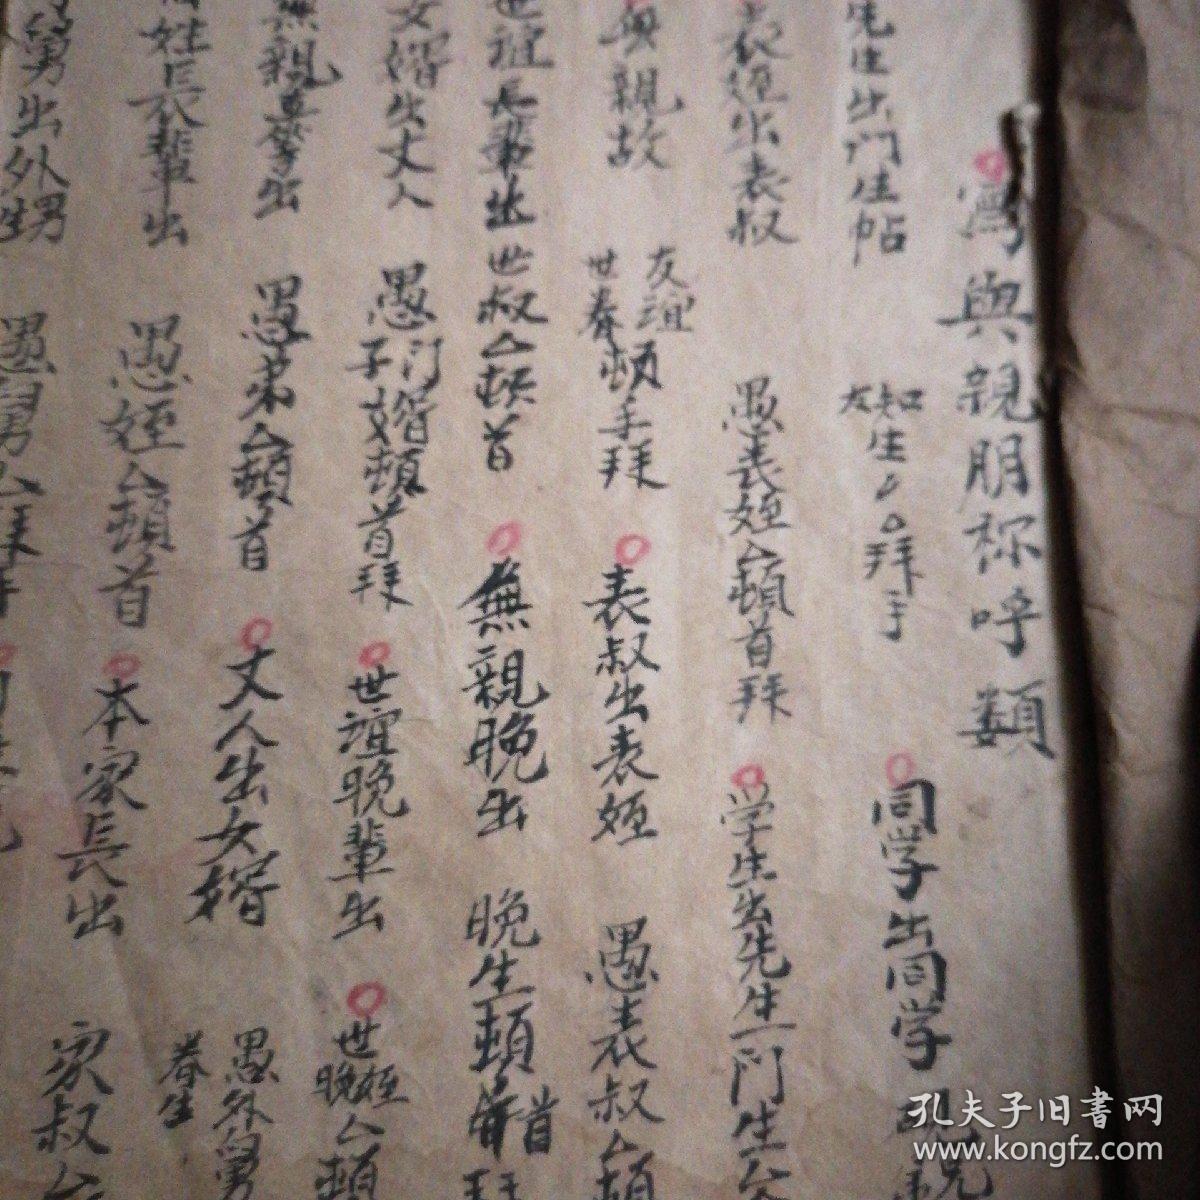 寫與親朋称呼類
先生出門生帖 友知生厶厶拜手 同学出同学
表姪出表叔 愚表姪厶頓首拜 学生出先生 门生厶
無親故 友誼世眷頓手拜 表叔出表姪 愚表叔厶頓
世誼長輩出 世叔厶頓首 無親晚出 晚生頓首拜
女婿出丈人 愚门子婿頓首拜 世誼晚輩出 世晚姪厶頓
無親並輩出 愚弟厶頓首 丈人出女婿 愚外舅眷生
姓長輩出 愚姪厶頓首 本家長出 家叔厶
舅出外甥 愚舅厶拜手
孔夫子旧書网
www.kongfz.com